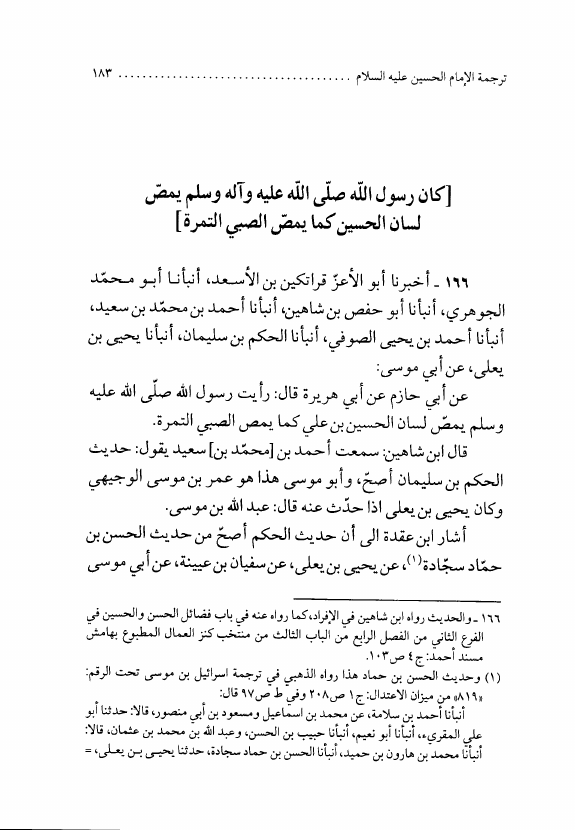 ترجمة الإمام الحسين عليه السلام ....................................... ١٨٣
[كان رسول اللّه صلّى اللّه عليه وآله وسلم يمصّ
لسان الحسين كما يمصّ الصبي التمرة]
١٦٦ ـ أخبرنا أبو الأعزّ قراتكين بن الأسعد، أنبأنا أبو محمّد
الجوهري، أنبأنا أبو حفص بن شاهين، أنبأنا أحمد بن محمّد بن سعيد،
أنبأنا أحمد بن يحيى الصوفي، أنبأنا الحكم بن سليمان، أنبأنا يحيى بن
يعلى، عن أبي موسى:
عن أبي حازم عن أبي هريرة قال: رأيت رسول الله صلّى الله عليه
وسلم يمصّ لسان الحسين بن علي كما يمص الصبي التمرة.
قال ابن شاهين: سمعت أحمد بن [محمّد بن] سعيد يقول: حديث
الحكم بن سليمان أصحّ، وأبو موسى هذا هو عمر بن موسى الوجيهي
وكان يحيى بن يعلى اذا حدّث عنه قال: عبد الله بن موسى.
أشار ابن عقدة الى أن حديث الحكم أصحّ من حديث الحسن بن
حمّاد سجّادة(١)، عن يحيى بن يعلى، عن سفيان بن عيينة، عن أبي موسى
١٦٦ ـ والحديث رواه ابن شاهين في الإفراد، كما رواه عنه في باب فضائل الحسن والحسين في
الفرع الثاني من الفصل الرابع من الباب الثالث من منتخب كنز العمال المطبوع بهامش
مسند أحمد: ج ٤ ص ١٠٣.
(١) وحديث الحسن بن حماد هذا رواه الذهبي في ترجمة اسرائيل بن موسى تحت الرقم:
«٨١٩» من ميزان الاعتدال: ج ١ ص ٢٠٨ وفي ط ص ٩٧ قال:
أنبأنا أحمد بن سلامة، عن محمد بن اسماعيل ومسعود بن أبي منصور، قالا: حدثنا أبو
علي المقريء، أنبأنا أبو نعيم، أنبأنا حبيب بن الحسن، وعبد الله بن محمد بن عثمان، قالا:
أنبأنا محمد بن هارون بن حميد، أنبأنا الحسن بن حماد سجادة، حدثنا يحيى بن يعلى، =